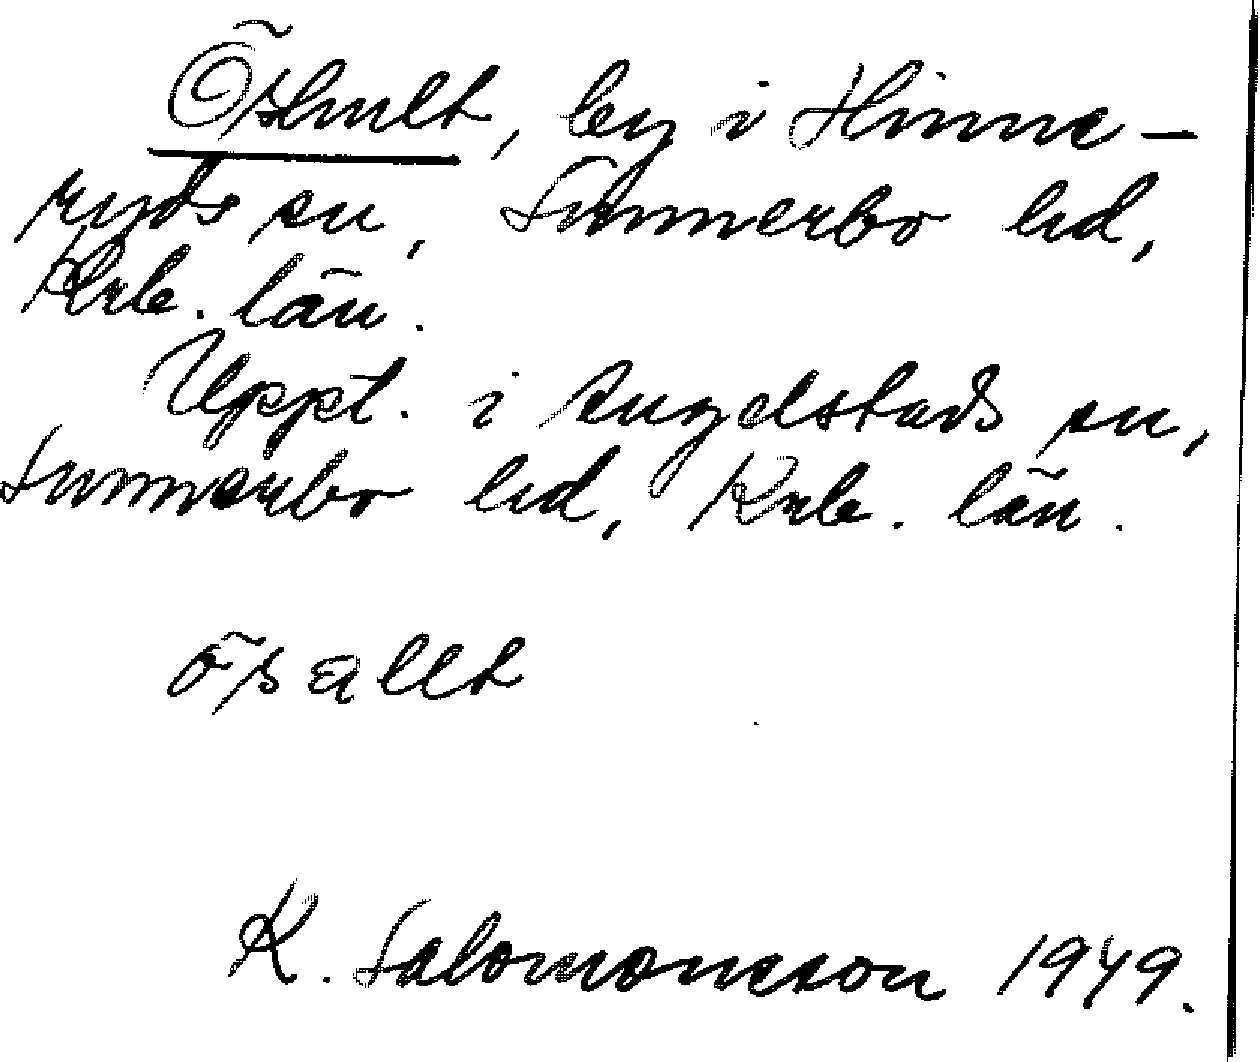 Öshult, by i Hinne-
ryds sn, Sunnerbo hd,
Krb. län.
Uppt. i Angelstads sn,
Sunnerbo hd, Krb. län.
K. Salomonsson 1949.